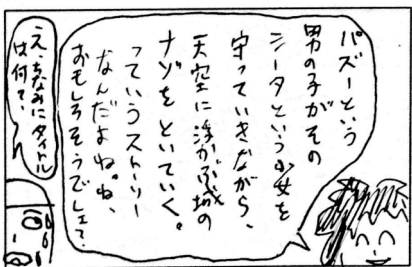 パズーという
男の子がその
シータという少女を
守っていきながら、
天空に浮かぶ城の
ナゾをといていく。
っていうストーリー
なんだよね。ね、
おもしろそうでしェ？
え、ちなみにタイトル
は何て、